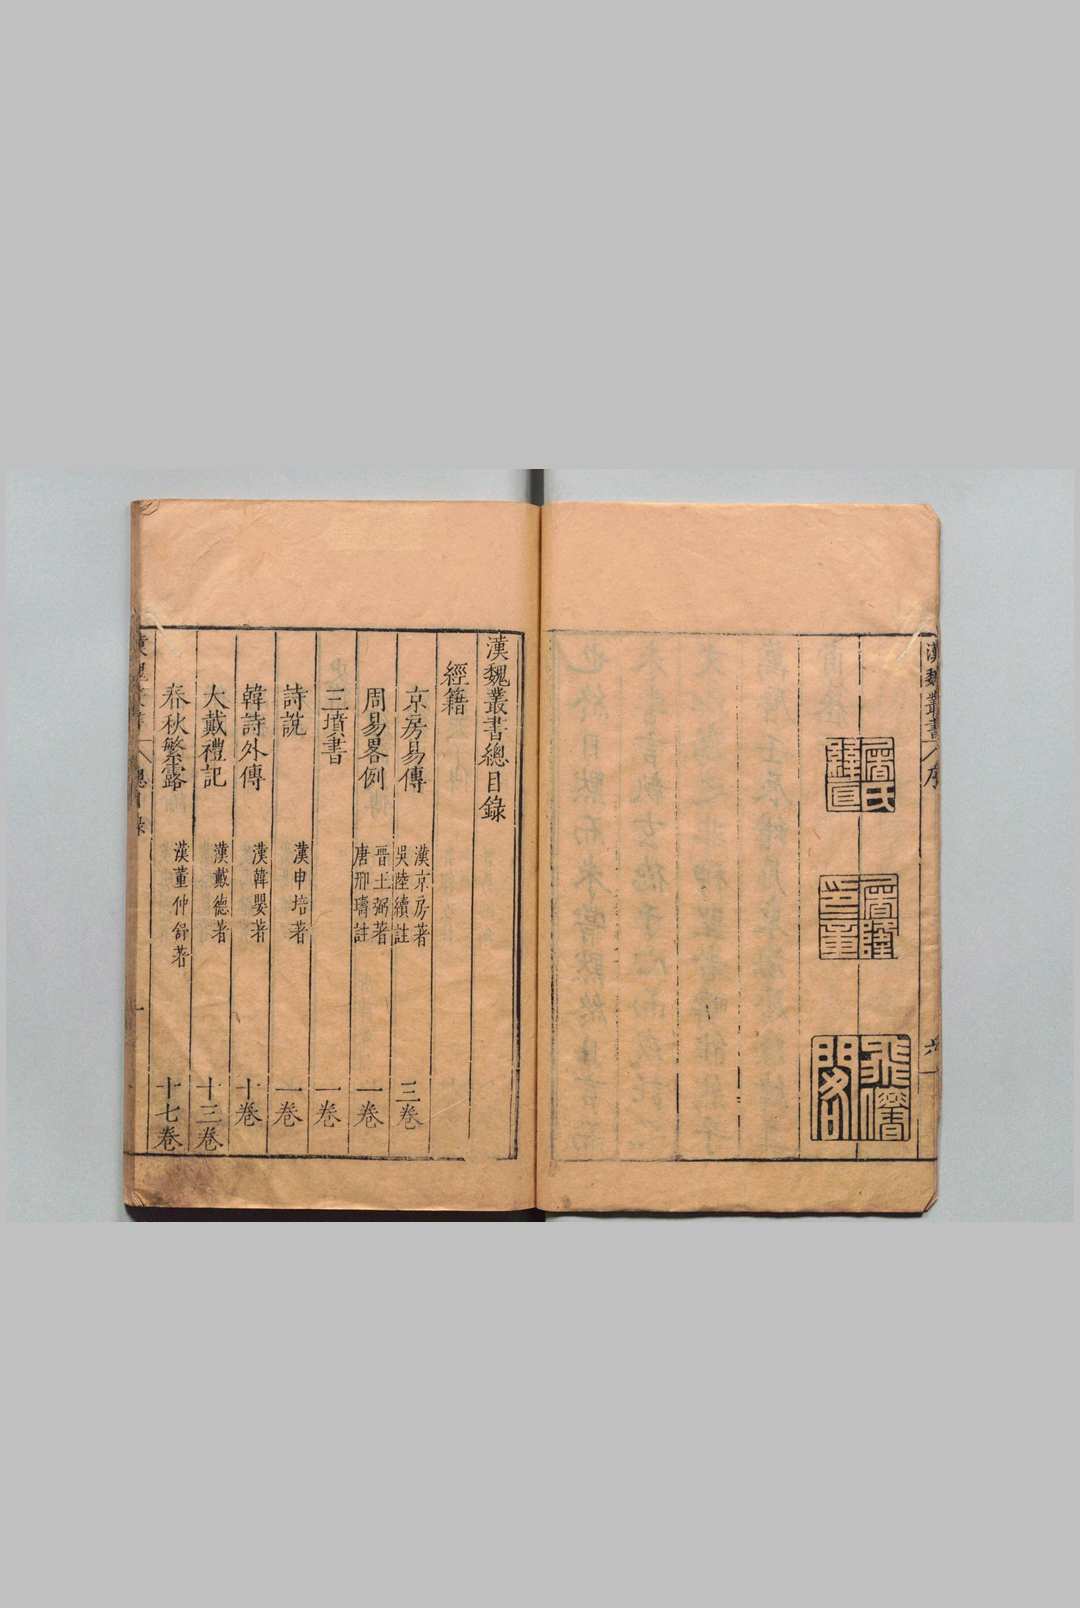 漢魏叢書
序
六
屠氏緯真
屠隆印章
飛僊閣
漢魏叢書總目錄
經籍
京房易傳 漢京房著 吳陸續註 三卷
周易畧例 晉王弼著 唐邢璹註 一卷
三墳書 一卷
詩說 漢申培著 一卷
韓詩外傳 漢韓嬰著 十卷
大戴禮記 漢戴德著 十三卷
春秋繁露 漢董仲舒著 十七卷
漢魏叢書
總目錄
一